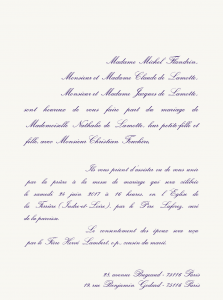 Madame Michel Flandrin,
Monsieur et Madame Claude de Lamotte,
Monsieur et Madame Jacques de Lamotte,
sont heureux de vous faire part du mariage de
Mademoiselle Nathalie de Lamotte, leur petite-fille et
fille, avec Monsieur Christian
Ils vous prient d'assister ou de vous unir
par la prière à la messe de mariage qui sera célébrée
le samedi 24 juin 2017 à 16 heures, en l'Eglise de
la Ferrière (Indre-et-Loire), par le Père
de la paroisse.
Le consentement des époux sera reçu
par le Frère Hervé o.p., cousin du marié.
avenue - 75116 Paris
19, rue Benjamin Godard - 75116 Paris